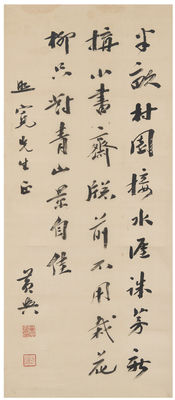 半畝村園接水涯誅茅新
搆小書齋牕前不用栽花
柳只對青山景自佳
兆寬先生正
黃興